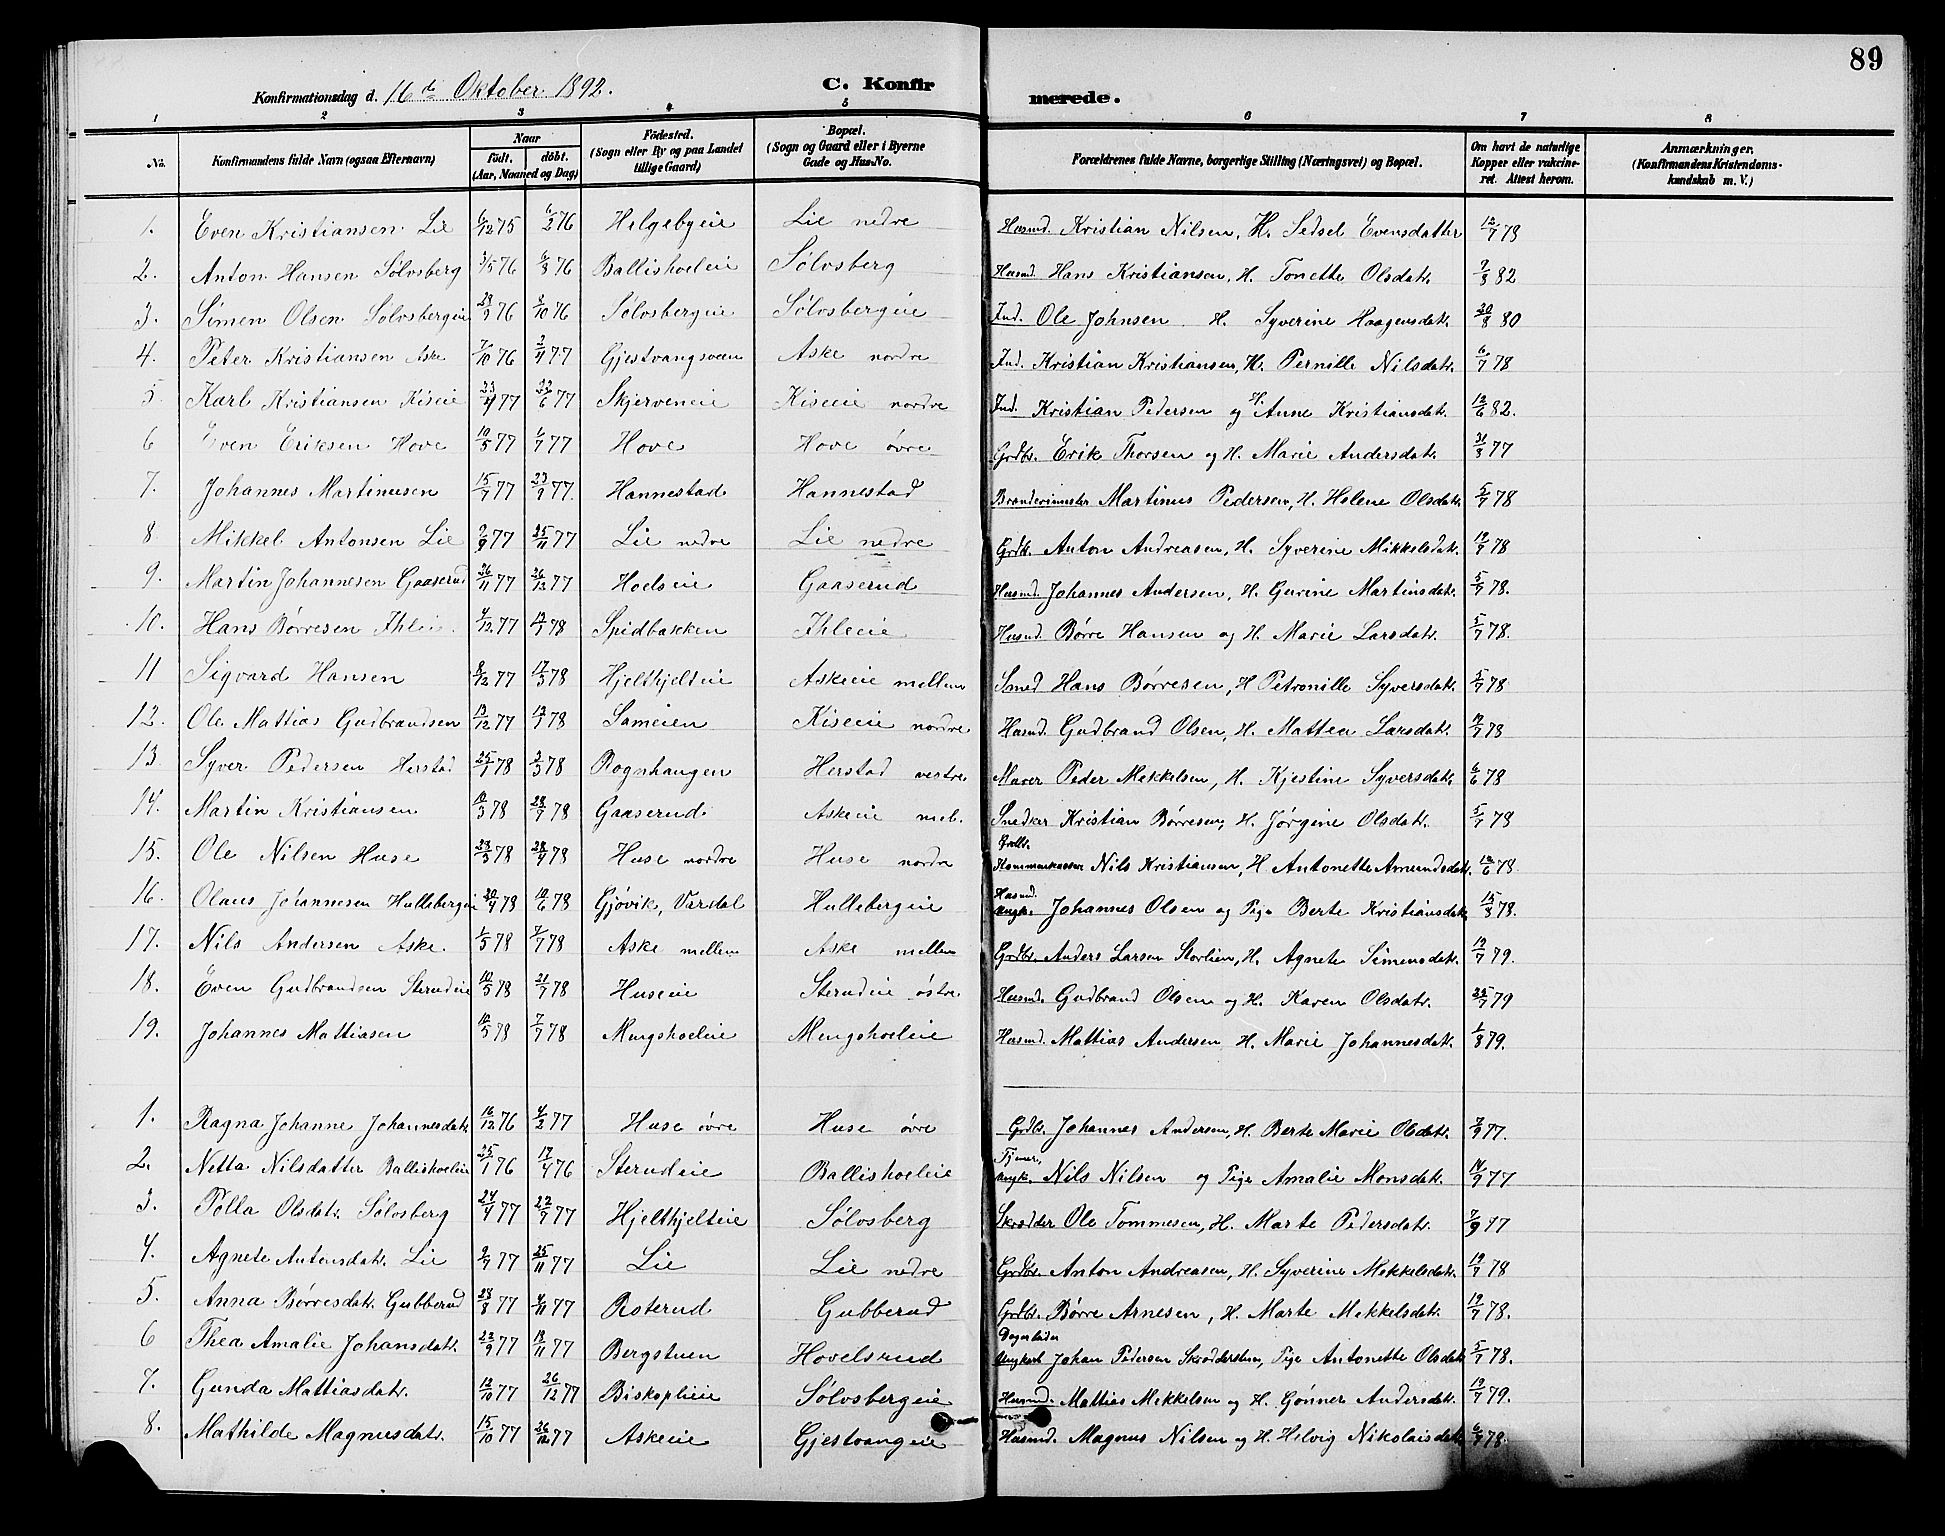 89
Konfirmationsdag d. 16de Oktober 1892. C. Konfirmerede.
1 2 3 4 5 6 7 8
No. Konfirmandens fulde Navn (ogsaa Efternavn) Naar født. døbt. (Aar, Maaned og Dag) Fødested. (Sogn eller By og paa Landet tillige Gaard) Bopæl. (Sogn og Gaard eller i Byerne Gade og Hus-No. Forældrenes fulde Navne, borgerlige Stilling (Næringsvei) og Bopæl. Om havt de naturlige Kopper eller vakcineret. Attest herom. Anmærkninger, (Konfirmandens Kristendomskundskab m. V.)
1. Even Kristiansen Lie 6/12 75 6/2 76 Helgebyeie Lie nedre Husmd. Kristian Nilsen, H. Sedsel Evensdatter 12/7 78
2. Anton Hansen Sølvsberg 3/5 76 6/8 76 Ballishoeleie Sølvsberg Husmd. Hans Kristiansen, H. Tonette Olsdatr. 9/8 82
3. Simen Olsen Sølvsbergeie 28/9 76 8/10 76 Sølvsbergeie Sølvsbergeie Ind. Ole Johnsen H. Syverine Haagensdatr. 30/8 80
4. Peter Kristiansen Aske 7/10 76 2/4 77 Gjestvangsveen Aske nordre Ind. Kristian Kristiansen, H. Pernille Nilsdatr. 6/7 78
5. Karl Kristiansen Kiseie 23/4 77 22/6 77 Skjerveneie Kiseie nordre Ind. Kristian Pedersen og H. Anne Kristiansdatr. 12/6 82.
6 Even Eriksen Hove 10/5 77 6/7 77 Hove Hove øvre Grdbr. Erik Thorsen og H. Marie Andersdatr. 31/8 77
7. Johannes Martinusen 15/7 77 23/9 77. Hannestad Hannestad Brænderimester Martinus Pedersen, H. Helene Olsdatr. 5/7 78
8. Mikkel Antonsen Lie 9/9 77 25/11 77 Lie nedre Lie nedre Grdbr. Anton Andreasen, H. Syverine Mikkelsdatr. 19/7 78
9. Martin Johannesen Gaaserud 26/11 77 26/12 77 Hoelseie Gaaserud Husmd. Johannes Andersen, H. Gurine Martinsdatr. 5/7 78.
10. Hans Børresen Ihleie 4/12 77 13/1 78 Spidbakken Ihleie Husmd. Børre Hansen og H. Marie Larsdatr. 5/7 78.
11 Sigvard Hansen 8/12 77 17/3 78 Hjelthjelteie Askeie mellem Smed Hans Børresen, H Petronille Syversdatr. 5/7 78
12. Ole Mattias Gudbrandsen 13/12 77 13/1 78 Sameien Kiseie nordre Husmd. Gudbrand Olsen, H. Mattea Larsdatr. 19/7 78
13. Syver Pedersen Herstad 25/1 78 3/3 78 Rognhaugen Herstad vestre Murer Peder Mekkelsen, H. Kjestine Syversdatr. 6/6 78
14. Martin Kristiansen 10/3 78 28/7 78 Gaaserud Askeie mel. Snedker Kristian Børresen, H. Jørgine Olsdatr. 5/7 78
15. Ole Nilsen Huse 23/3 78 28/4 78 Huse nordre Huse nordre Nils Kristiansen, H. Antonette Amundsdatr. 12/6 78.
16. Olaus Johannesen Hullebergeie 20/4 78 10/6 78 Gjøvik, Vardal Hullebergeie Husmd. Ungk. Johannes Olsen og Pige Berte Kristiansdatr. 15/8 78.
17. Nils Andersen Aske. 1/5 78 7/7 78 Aske mellem Aske mellem Grdbr. Anders Larsen Storlien, H. Agnete Simensdatr. 19/7 79.
18. Even Gudbrandsen Sterudeie 10/5 78 21/7 78 Huseie Sterudeie østre Husmd. Gudbrand Olsen og H. Karen Olsdatr. 25/7 79
19. Johannes Mattiasen 12/5 78 7/7 78 Mengshoeleie Mengshoeleie Husmd. Mattias Andersen H. Marie Johannesdatr. 1/8 79.
1. Ragna Johanne Johannesdatr. 16/12 76 4/2 77 Huse øvre Huse øvre Grdbr. Johannes Andersen, H. Berte Marie Olsdatr. 7/9 77.
2. Netta Nilsdatter Ballishoeleie 25/1 76 17/4 76 Sterudeie Ballishoeleie Tjener, Ungk. Nils Nilsen og Pige Amalie Monsdatr. 14/9 77
3. Polla Olsdatr. Sølvsberg 24/4 77 22/9 77 Hjelthjelteie Sølvsberg Skrædder Ole Tommesen, H. Marte Pedersdatr. 7/9 77
4. Agnete Antonsdatr. Lie 9/7 77 25/11 77 Lie Lie nedre Grdbr. Anton Andreasen, H. Syverine Mekkelsdatr. 19/7 78
5. Anna Børresdatr. Gubberud 28/8 77 4/11 77 Roterud Gubberud Grdbr. Børre Arnesen, H. Marte Mekkelsdatr. 19/7 78.
6 Thea Amalie Johansdatr. 22/9 77 18/11 77 Bergstuen Hovelsrud Dagarbeider Ungkarl Johan Pedersen Skrædderstuen, Pige Antonette Olsdatr. 5/7 78.
7. Gunda Mattiasdatr. 12/10 77 26/12 77 Biskoplieie Sølvsbergeie Husmd. Mattias Mekkelsen og H. Gønner Andersdatr. 19/7 79.
8. Mathilde Magnusdatr. 15/10 77 26/12 77 Askeie Gjestvangeie Husmd. Magnus Nilsen og H. Helvig Nikolaisdatr. 6/7 78.